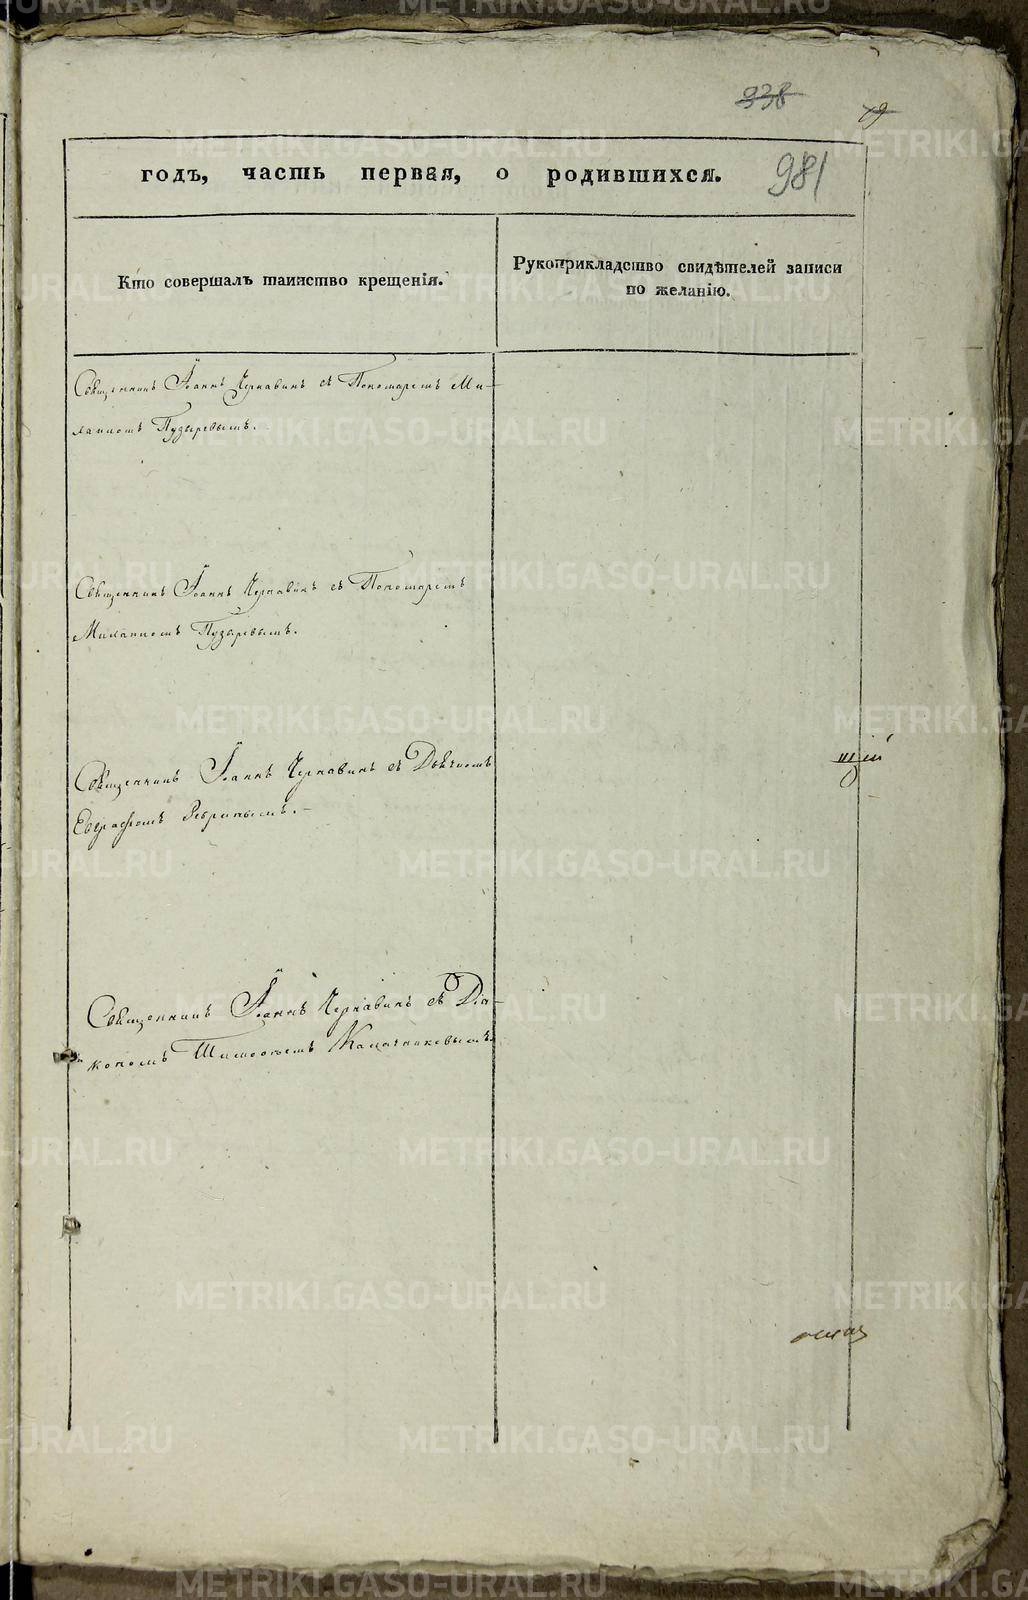 338
79
981
годъ, часть первая, о родившихся.
Кто совершалъ таинство крещенія.
Рукоприкладство свидѣтелей записи
по желанію.
Священникъ Іоаннъ Чернавинъ съ Пономаремъ Ми-
Пузыревымъ.
Священникъ Іоаннъ Чернавинъ съ Пономаремъ
Пузыревымъ.
Священникъ Іоаннъ Чернавинъ съ Дьячкомъ
Евграфомъ Ребринымъ.
Священникъ Іоаннъ Чернавинъ съ Діа-
кономъ Тимофеемъ Калачниковымъ.
METRIKI.GASO-URAL.RU